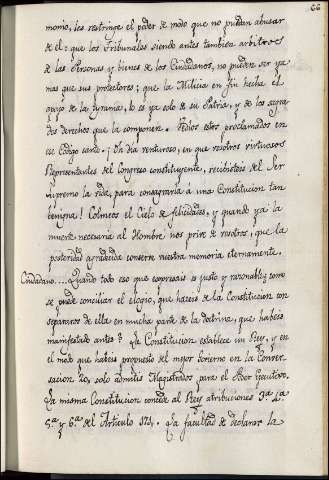 66
monio, les restringe el poder de modo que no puedan abusar
de el: que los Tribunales siendo antes tambien arbitros
de las Personas y bienes de los Ciudadanos, no puedan ser ya
mas que sus protectores; que la Milicia en fin hecha el
apoyo de la tyrania, lo es ya solo de su Patria, y de los sagra-
dos derechos que la componen. Todos estos proclamados en
su Codigo santo. ¡Oh dia venturoso, en que vosotros virtuosos
Representantes del Congreso constituyente, recibisteis del Ser
supremo la vida, para consagrarla á una Constitucion tan
benigna! Colmeos el Cielo de felicidades, y quando ya la
muerte necesaria al Hombre nos prive de vosotros, que la
posteridad agradecida conserve vuestra memoria eternamente.
Ciudadano.... Quando todo eso que expresais es justo y razonable, ¿como
se puede conciliar el elogio, que haceis de la Constitucion con
separaros de ella en mucha parte de la doctrina, que habeis
manifestado antes? La Constitucion establece un Rey, y en
el modo que habeis propuesto del mejor Govierno en la Conver-
sacion 20, solo admitis Magistrados para el Poder Executivo.
La misma Constitucion concede al Rey atribuciones 3ª 4ª
5ª y 6ª del Articulo 171. La facultad de declarar la